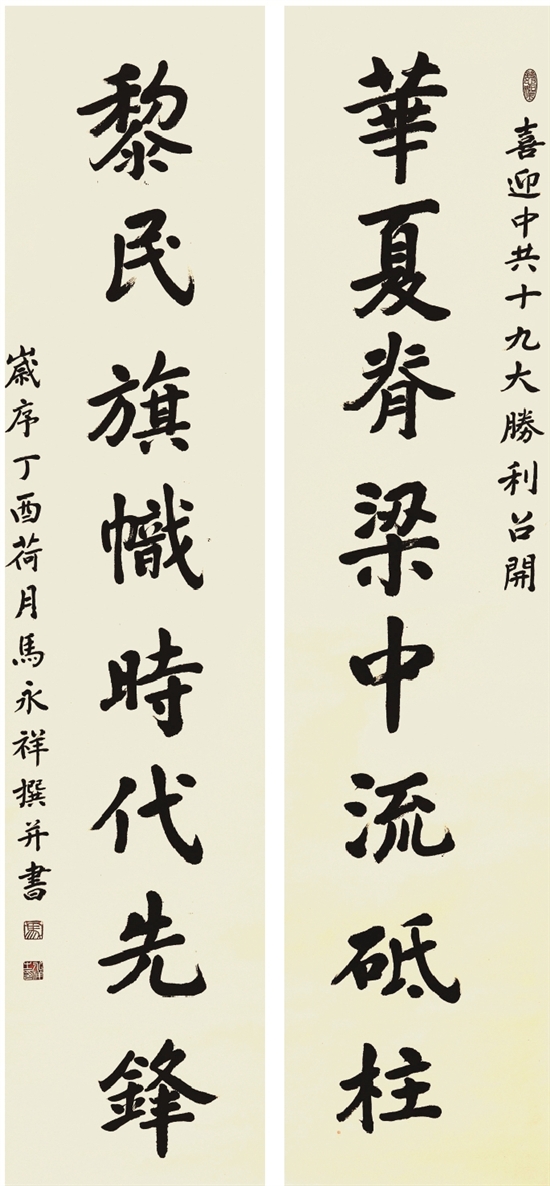 喜迎中共十九大勝利召開
華夏脊梁中流砥柱
黎民旗幟時代先鋒
歲序丁酉荷月馬永祥撰并書